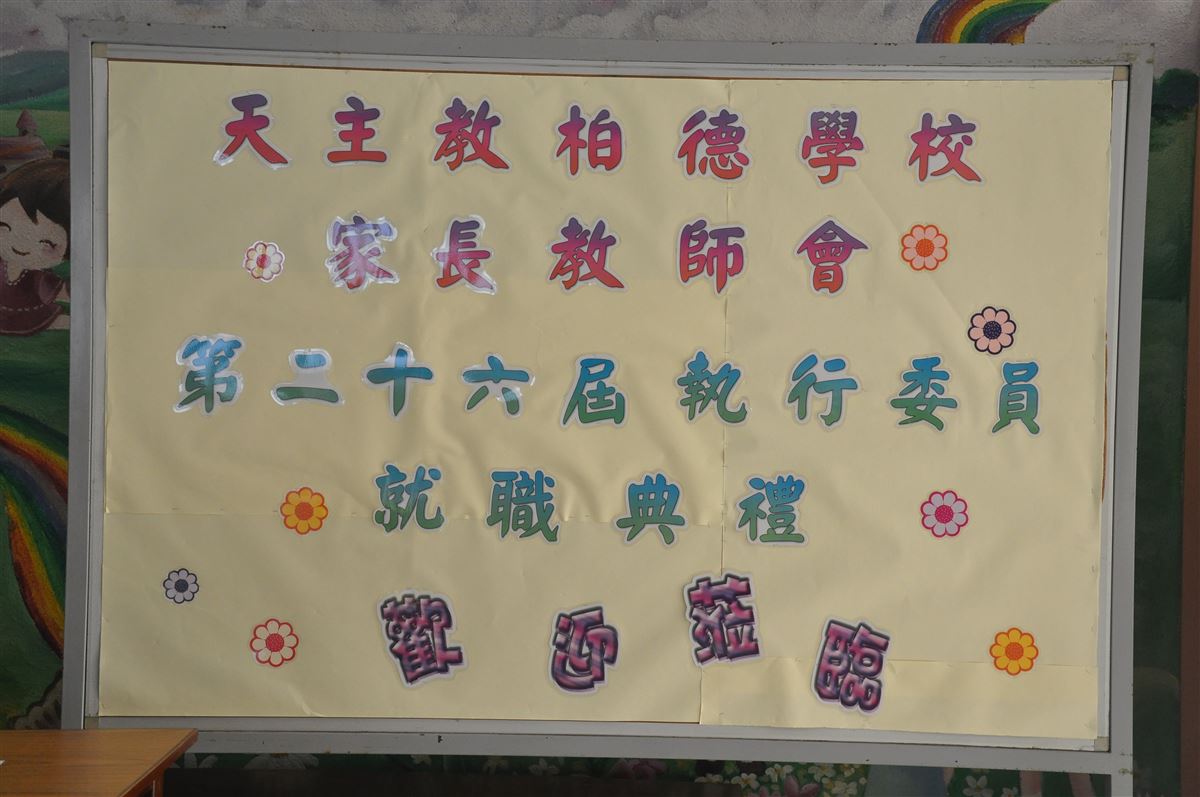 天主教柏德學校
家長教師會
第二十六屆執行委員
就職典禮
歡迎蒞臨